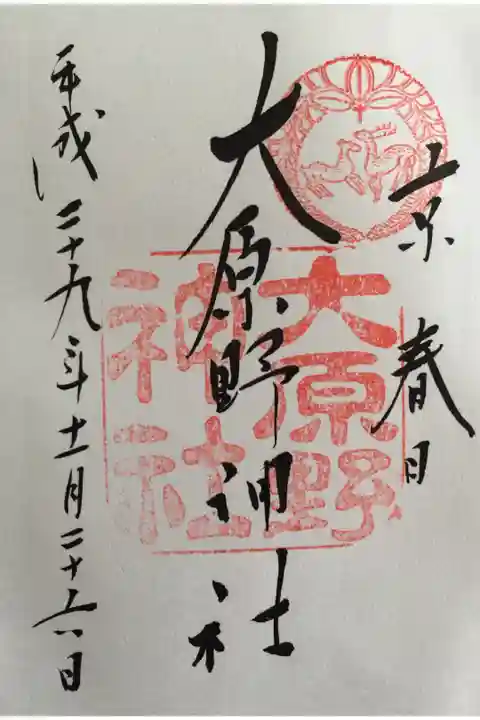 京春日
大原野神社
平成二十九年十一月二十六日
大原野
神社